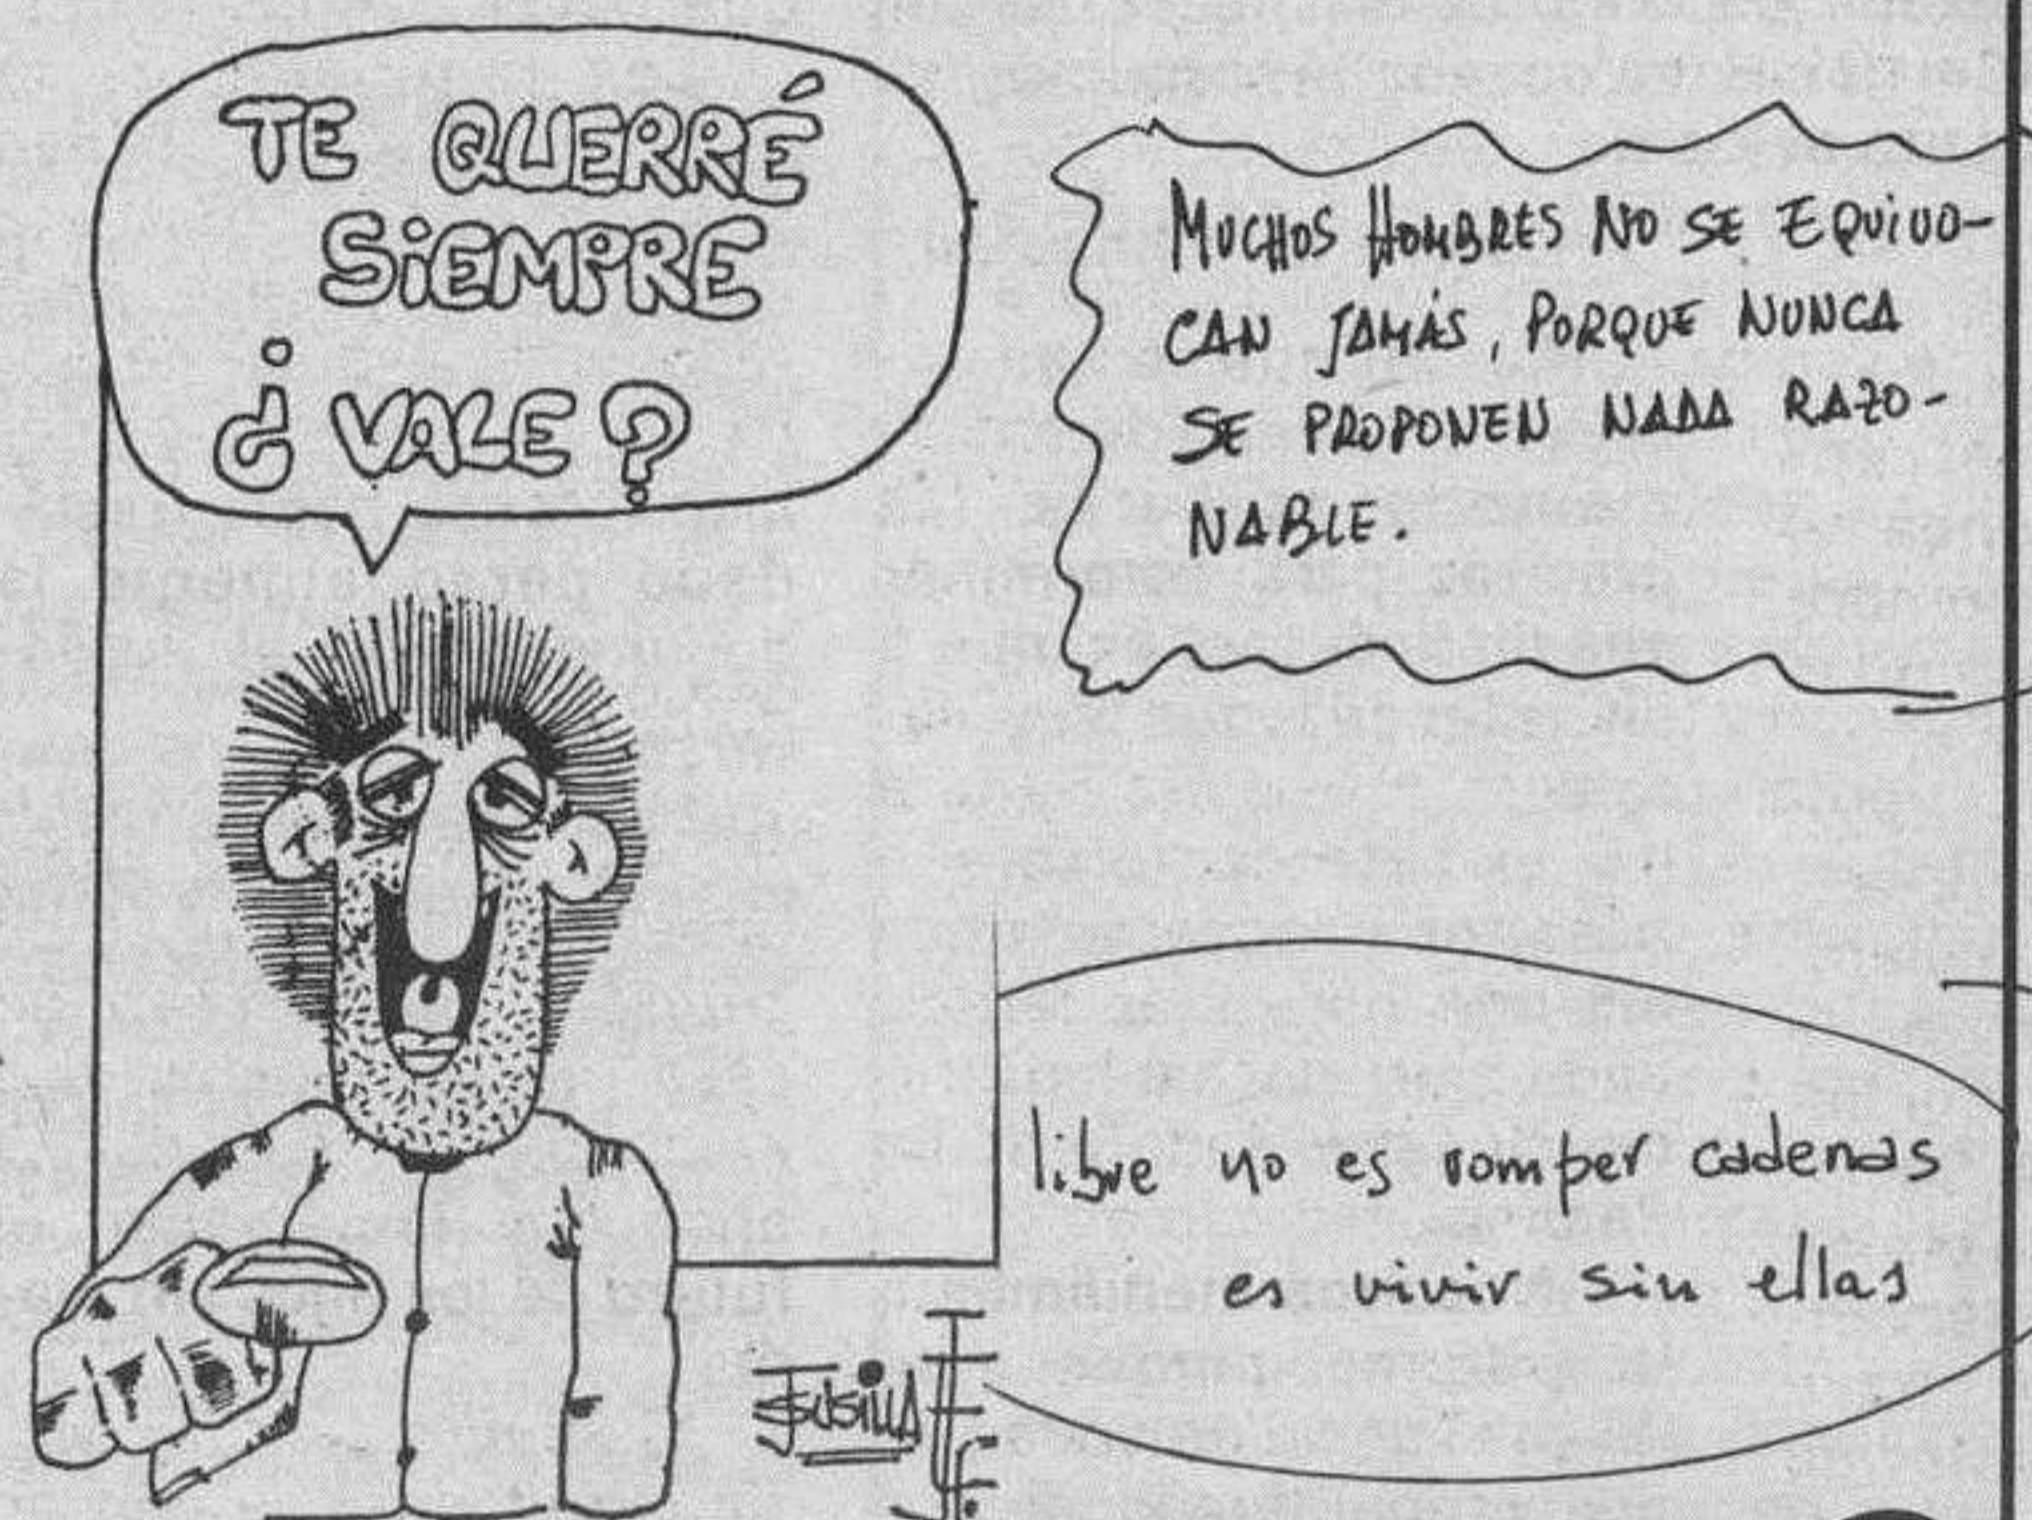 TE QUERRÉ
SiEMPRE
¿ VALE ?
MUCHOS HOMBRES NO SE EQUiVO-
CAN JAMÁS, PORQUE NUNCA
SE PROPONEN NADA RAZO-
NABLE.
libre no es romper cadenas
es vivir sin ellas